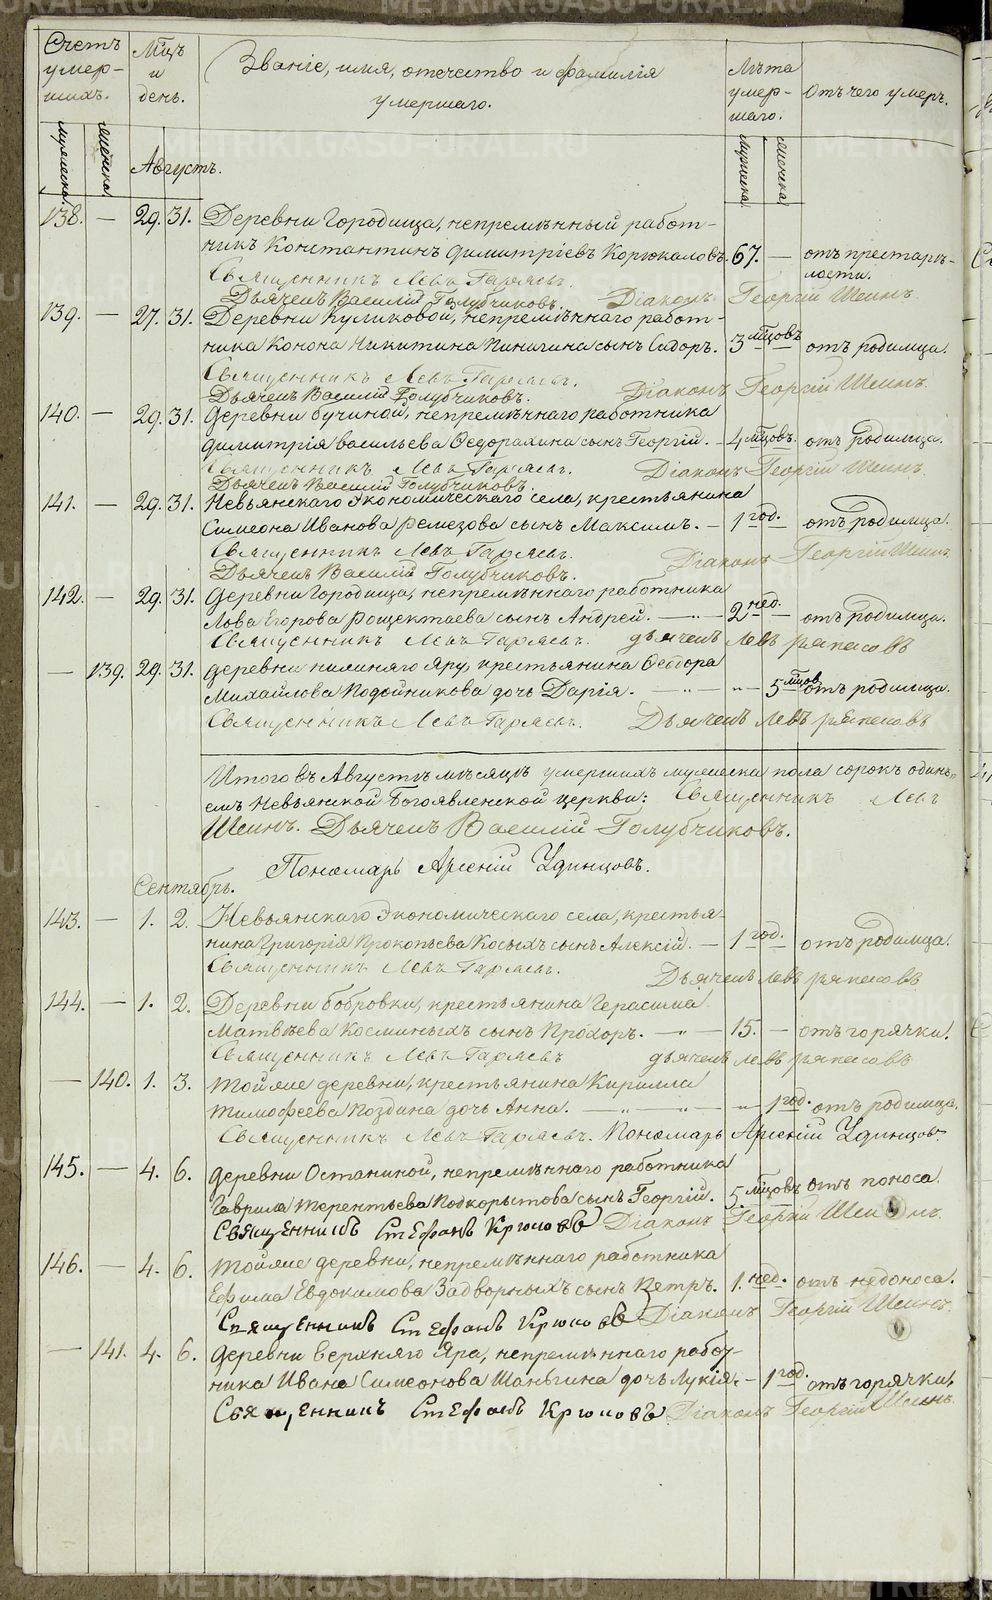 Счетъ умер-шихъ.
Мцъ и день.
Званіе, имя, отечество и фамилія умершаго.
Лѣта умер-шаго.
Отъ чего умеръ.
мужеска
женска
Августъ.
мужеска
женска
138. — 29. 31. Деревни Городища, непремѣнный работ-
никъ Константинъ Димитріевъ Корюкаловъ. 67. — отъ престарѣ-
лости.
Священникъ Левъ Гаряевъ.
Дьячекъ Василій Голубчиковъ. Діаконъ Георгій Шеинъ.
139. — 27. 31. Деревни Куликовой, непремѣннаго работ-
ника Конона Никитина Пинигина сынъ Сидоръ. 3 мцовъ — отъ родимца.
Священникъ Левъ Гаряевъ.
Дьячекъ Василій Голубчиковъ. Діаконъ Георгій Шеинъ.
140. — 29. 31. Деревни бучиной, непремѣннаго работника
Димитрія Васильева Федорахина сынъ Георгій. — 4 мцовъ. отъ родимца.
Священникъ Левъ Гаряевъ. Діаконъ Георгій Шеинъ.
Дьячекъ Василій Голубчиковъ.
141. — 29. 31. Невьянскаго Экономическаго села, крестьянина
Симеона Иванова Ремезова сынъ Максимъ. — 1 год. — отъ родимца.
Священникъ Левъ Гаряевъ. Діаконъ Георгій Шеинъ
Дьячекъ Василій Голубчиковъ.
142. — 29. 31. Деревни Городища, непремѣннаго работника
Лова Егорова Рощектаева сынъ Андрей. — 2 нед. — отъ родимца.
Священникъ Левъ Гаряевъ. дьячекъ Левъ ряпасовъ
— 139. 29. 31. деревни нижняго Яру, крестьянина Ѳедора
Михайлова Подойникова дочь Дарія. — „ — 5 мцов отъ родимца.
Священникъ Левъ Гаряевъ. Дьячекъ Левъ ряпасовъ
Итого въ Августѣ мѣсяцѣ умершихъ мужеска пола сорокъ одинъ,
емъ Невьянской Богоявленской церкви: Священникъ Левъ
Шеинъ. Дьячекъ Василій Голубчиковъ.
Пономарь Арсеній Удинцовъ.
Сентябрь.
143. — 1. 2. Невьянскаго Экономическаго села, крестья-
нина Григорія Прокопьева Косыхъ сынъ Алексій. — 1 год. отъ родимца.
Священникъ Левъ Гаряевъ. Дьячекъ Левъ ряпасовъ
144. — 1. 2. Деревни бобровки, крестьянина Герасима
Матвѣева Косминыхъ сынъ Прохоръ. — „ — 15. — отъ горячки.
Священникъ Левъ Гаряевъ дьячекъ Левъ ряпасовъ
— 140. 1. 3. Тойже деревни, крестьянина Кирилла
Тимофеева Поздина дочь Анна. — „ — „ — „ — 1 год. отъ родимца.
Священникъ Левъ Гаряевъ. Пономарь Арсеній Удинцовъ
145. — 4. 6. деревни Останиной, непремѣннаго работника
Гаврила Терентьева Подкорытова сынъ Георгій. 5 мцовъ отъ поноса.
Священникъ Стефанъ Крюковъ Діаконъ Георгій Шеинъ
146. — 4. 6. Тойже деревни, непремѣннаго работника
Ефима Евдокимова Задворныхъ сынъ Петръ. 1. нед. отъ недоноса.
Священникъ Стефанъ Крюковъ Діаконъ Георгій Шеинъ.
— 141. 4. 6. Деревни Верхняго Яра, непремѣннаго работ-
ника Ивана Симеонова Шаньгина дочь Лукія. — 1 год. отъ горячки.
Священникъ Стефанъ Крюковъ Діаконъ Георгій Шеинъ.
METRIKI.GASU-URAL.RU